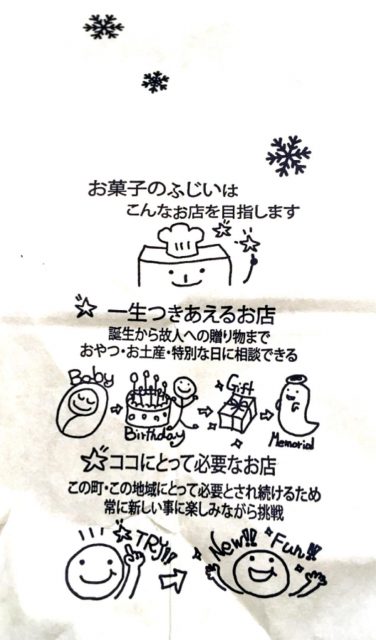 お菓子のふじいは
こんなお店を目指します
一生つきあえるお店
誕生から故人への贈り物まで
おやつ・お土産・特別な日に相談できる
Baby
Birthday
Gift
Memorial
ココにとって必要なお店
この町・この地域にとって必要とされ続けるため
常に新しい事に楽しみながら挑戦
TRY!!
New!! Fun!!